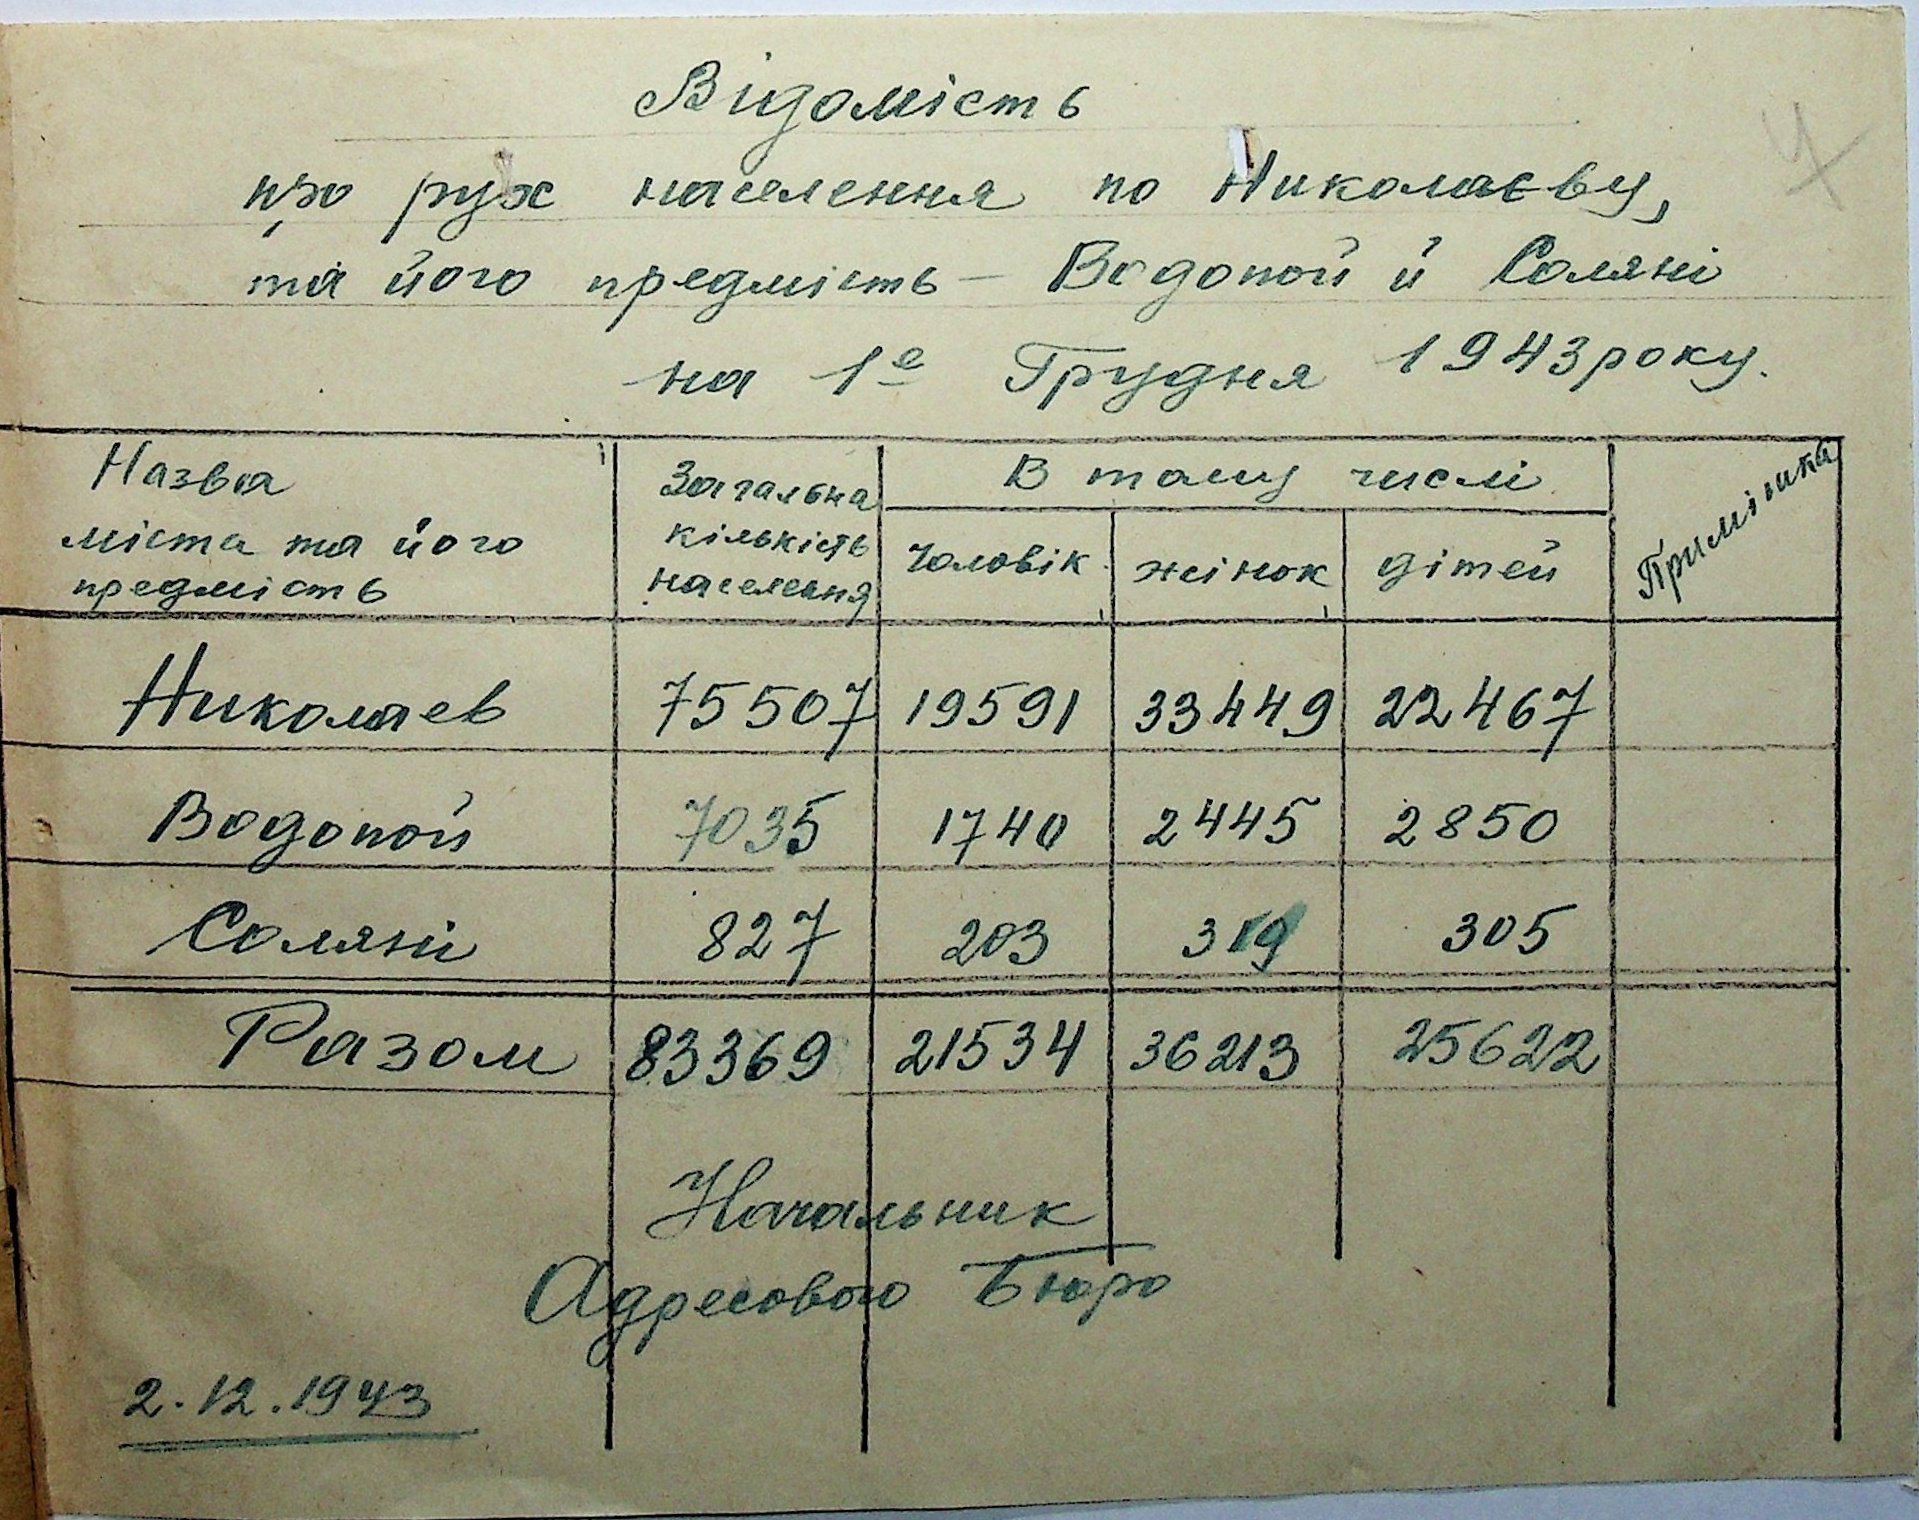 Відомість
про рух населення по Николаєву,
та його предмість – Водопой й Соляні
на 1е Грудня 1943 року.
Назва міста та його предмість | Загальна кількість населення | В тому числі | Примітка
чоловік | жінок | дітей
Николаев 75507 19591 33449 22467
Водопой 7035 1740 2445 2850
Соляні 827 203 319 305
Разом 83369 21534 36213 25622
Начальник
Адресового Бюро
2.12.1943